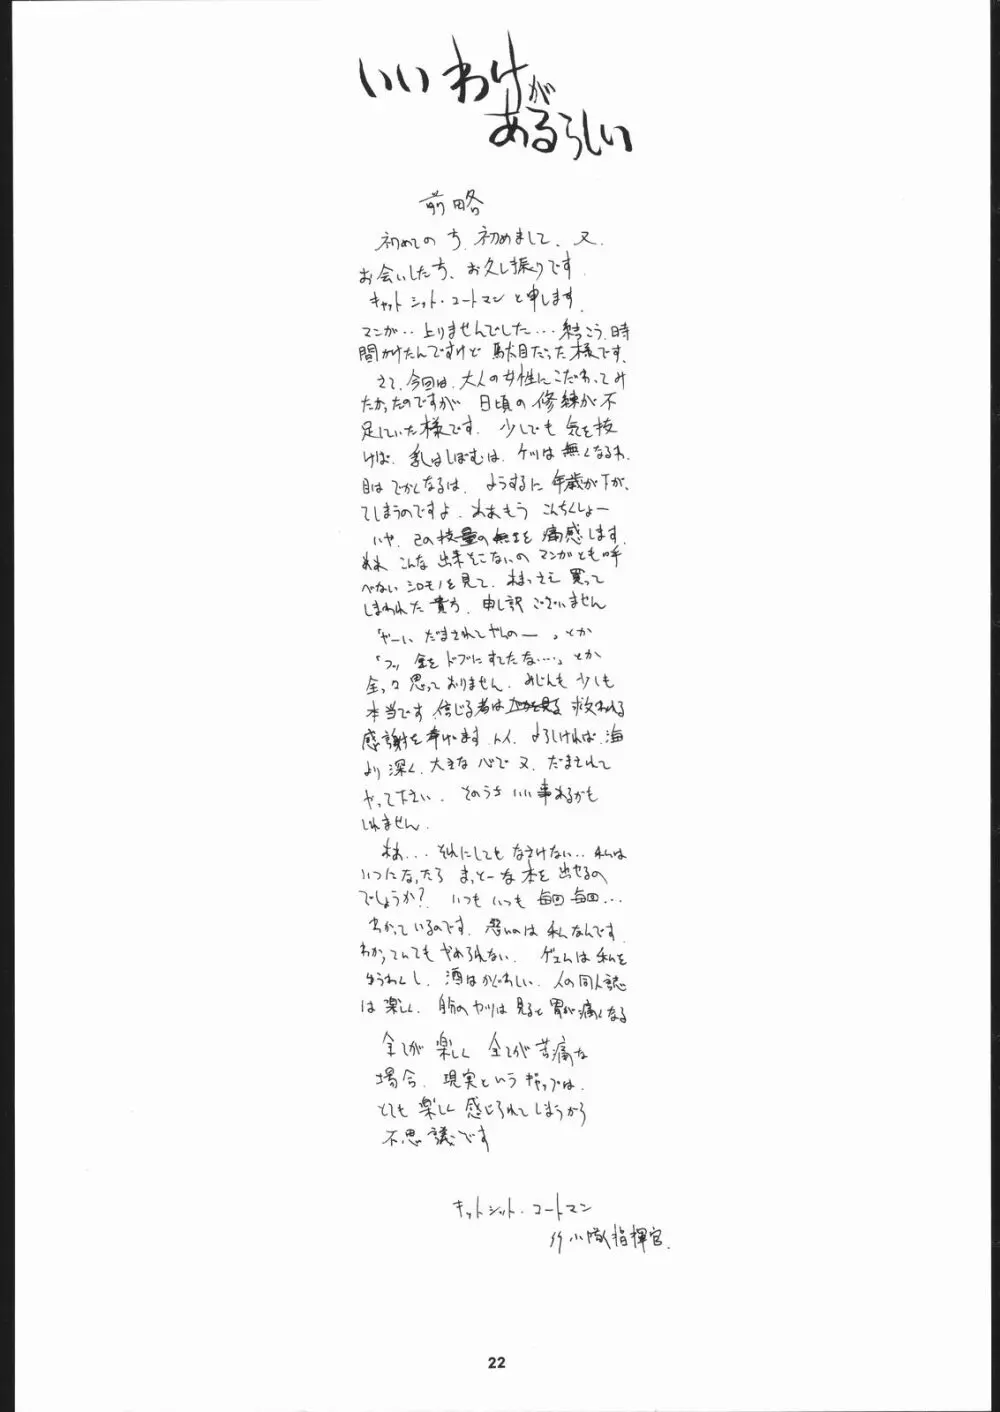 いいわけが
あるらしい
前略
初めての方、初めまして、又、
お会いした方、お久し振りです。
キャットシット・コートマンと申します。
マンガ‥上りませんでした…結こう、時
間かけたんですけど 駄目だった様です。
さて、今回は、大人の女性にこだわってみ
たかったのですが 日頃の修練が不
足していた様です。少しでも 気を抜
けば、乳はしぼむは、ケツは無くなるわ、
目はでかくなるは、ようするに 年歳が下が、
てしまうのですよ、ああもう こんちくしょー
いや、己の技量の無さを 痛感します。
ああ、こんな 出来そこないの マンガとも呼
べない シロモノを見て、あまつさえ 買って
しまわれた 貴方、申し訳 ございません
「やーい だまされてやんのー」とか
「フッ 金を ドブにすてたな…」とか
全っ々 思っておりません、みじんも 少しも
本当です 信じる者は 救われる
感謝を 奉げます よろしければ、海
より 深く、大きな 心で 又、だまされて
やって下さい。 そのうち いい事あるかも
しれません。
ああ… それにしても なさけない‥ 私は
いつになったら まっとーな 本を 出せるの
でしょうか？ いつも いつも 毎回 毎回…
わかっているのです、悪いのは 私なんです。
わかってても やめられない。 ゲエムは 私を
ゆうわくし、 酒は かぐわしい、 人の 同人誌
は 楽しく、 自分の ヤツは 見ると 胃が 痛くなる
全てが 楽しく 全てが 苦痛な
場合、現実という ギャップは、
とても 楽しく 感じられて しまうから
不思議です
キャットシット・コートマン
小隊指揮官
22